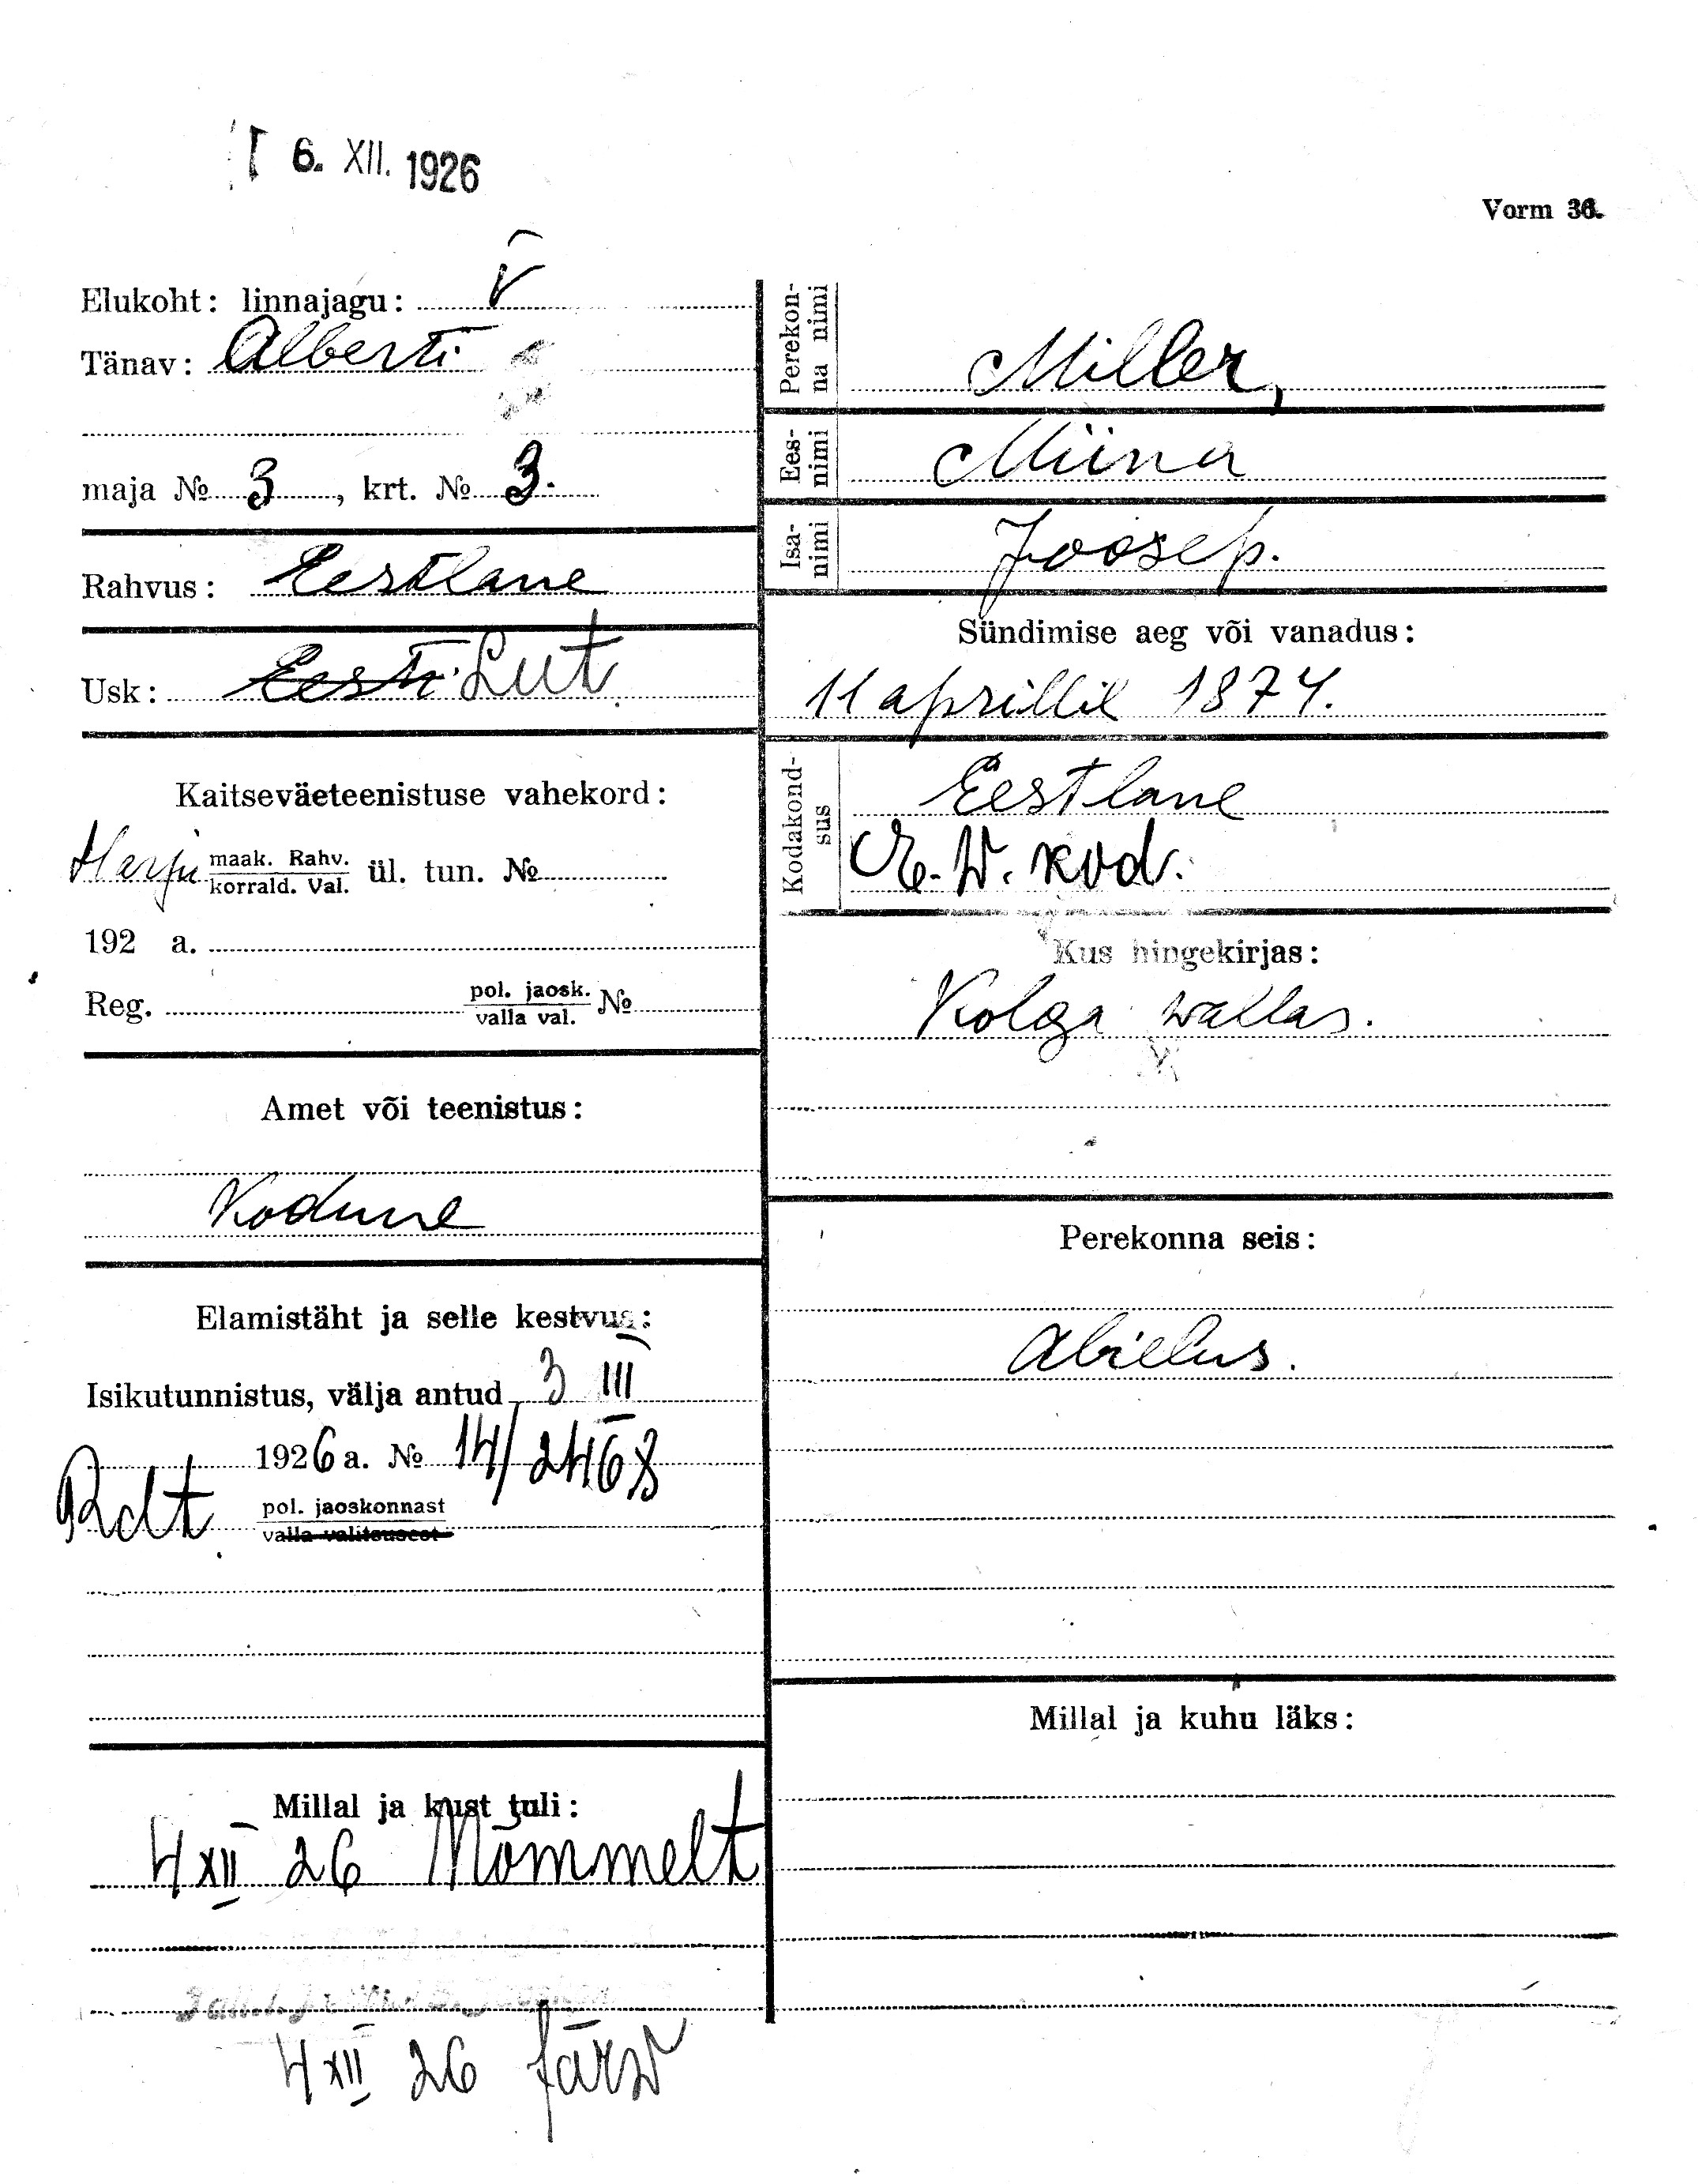 6. XII. 1926
Vorm 36.
Elukoht: linnajagu: V
Tänav: Alberti
maja № 3, krt. № 3.
Rahvus: Eestlane
Usk: Eesti Lut
Kaitseväeteenistuse vahekord:
Harju maak. Rahv. korrald. Val. ül. tun. №
192 a.
Reg. pol. jaosk. valla val. №
Amet või teenistus:
Kodune
Elamistäht ja selle kestvus:
Isikutunnistus, välja antud 3 III
1926 a. № 14/2468
pol. jaoskonnast
valla valitsusest
Millal ja kust tuli:
4 XII 26 Nõmmelt
4 XII 26
Perekonna nimi
Miller,
Eesnimi
Miina
Isanimi
Joosep.
Sündimise aeg või vanadus:
11 aprillil 1874.
Kodakondsus
Eestlane
E. W. kod.
Kus hingekirjas:
Kolga wallas.
Perekonna seis:
Abielus.
Millal ja kuhu läks: